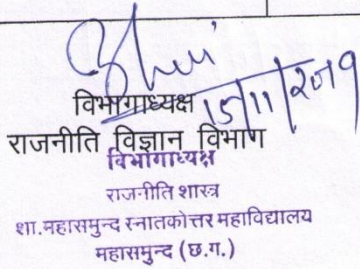 विभागाध्यक्ष
15/11/2019
राजनीति विज्ञान विभाग
विभागाध्यक्ष
राजनीति शास्त्र
शा.महासमुन्द स्नातकोत्तर महाविद्यालय
महासमुन्द (छ.ग.)